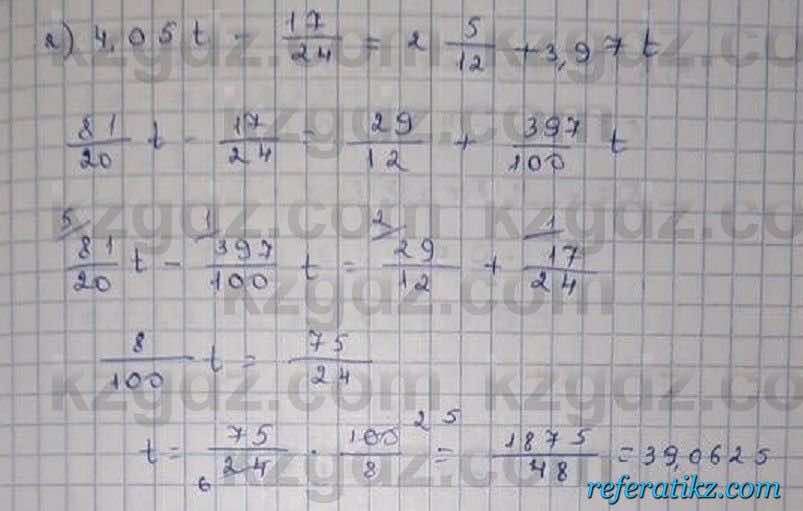 а) 4,05 t - 17/24 = 2 5/12 + 3,97 t
81/20 t - 17/24 = 29/12 + 397/100 t
5 1 2 1
81/20 t - 397/100 t = 29/12 + 17/24
8/100 t = 75/24
t = 75/24 · 100/8 = 1875/48 = 39,0625
6 25
kzgdz.com
kzgdz.com
kzgdz.com
kzgdz.com
kzgdz.com
referatikz.com